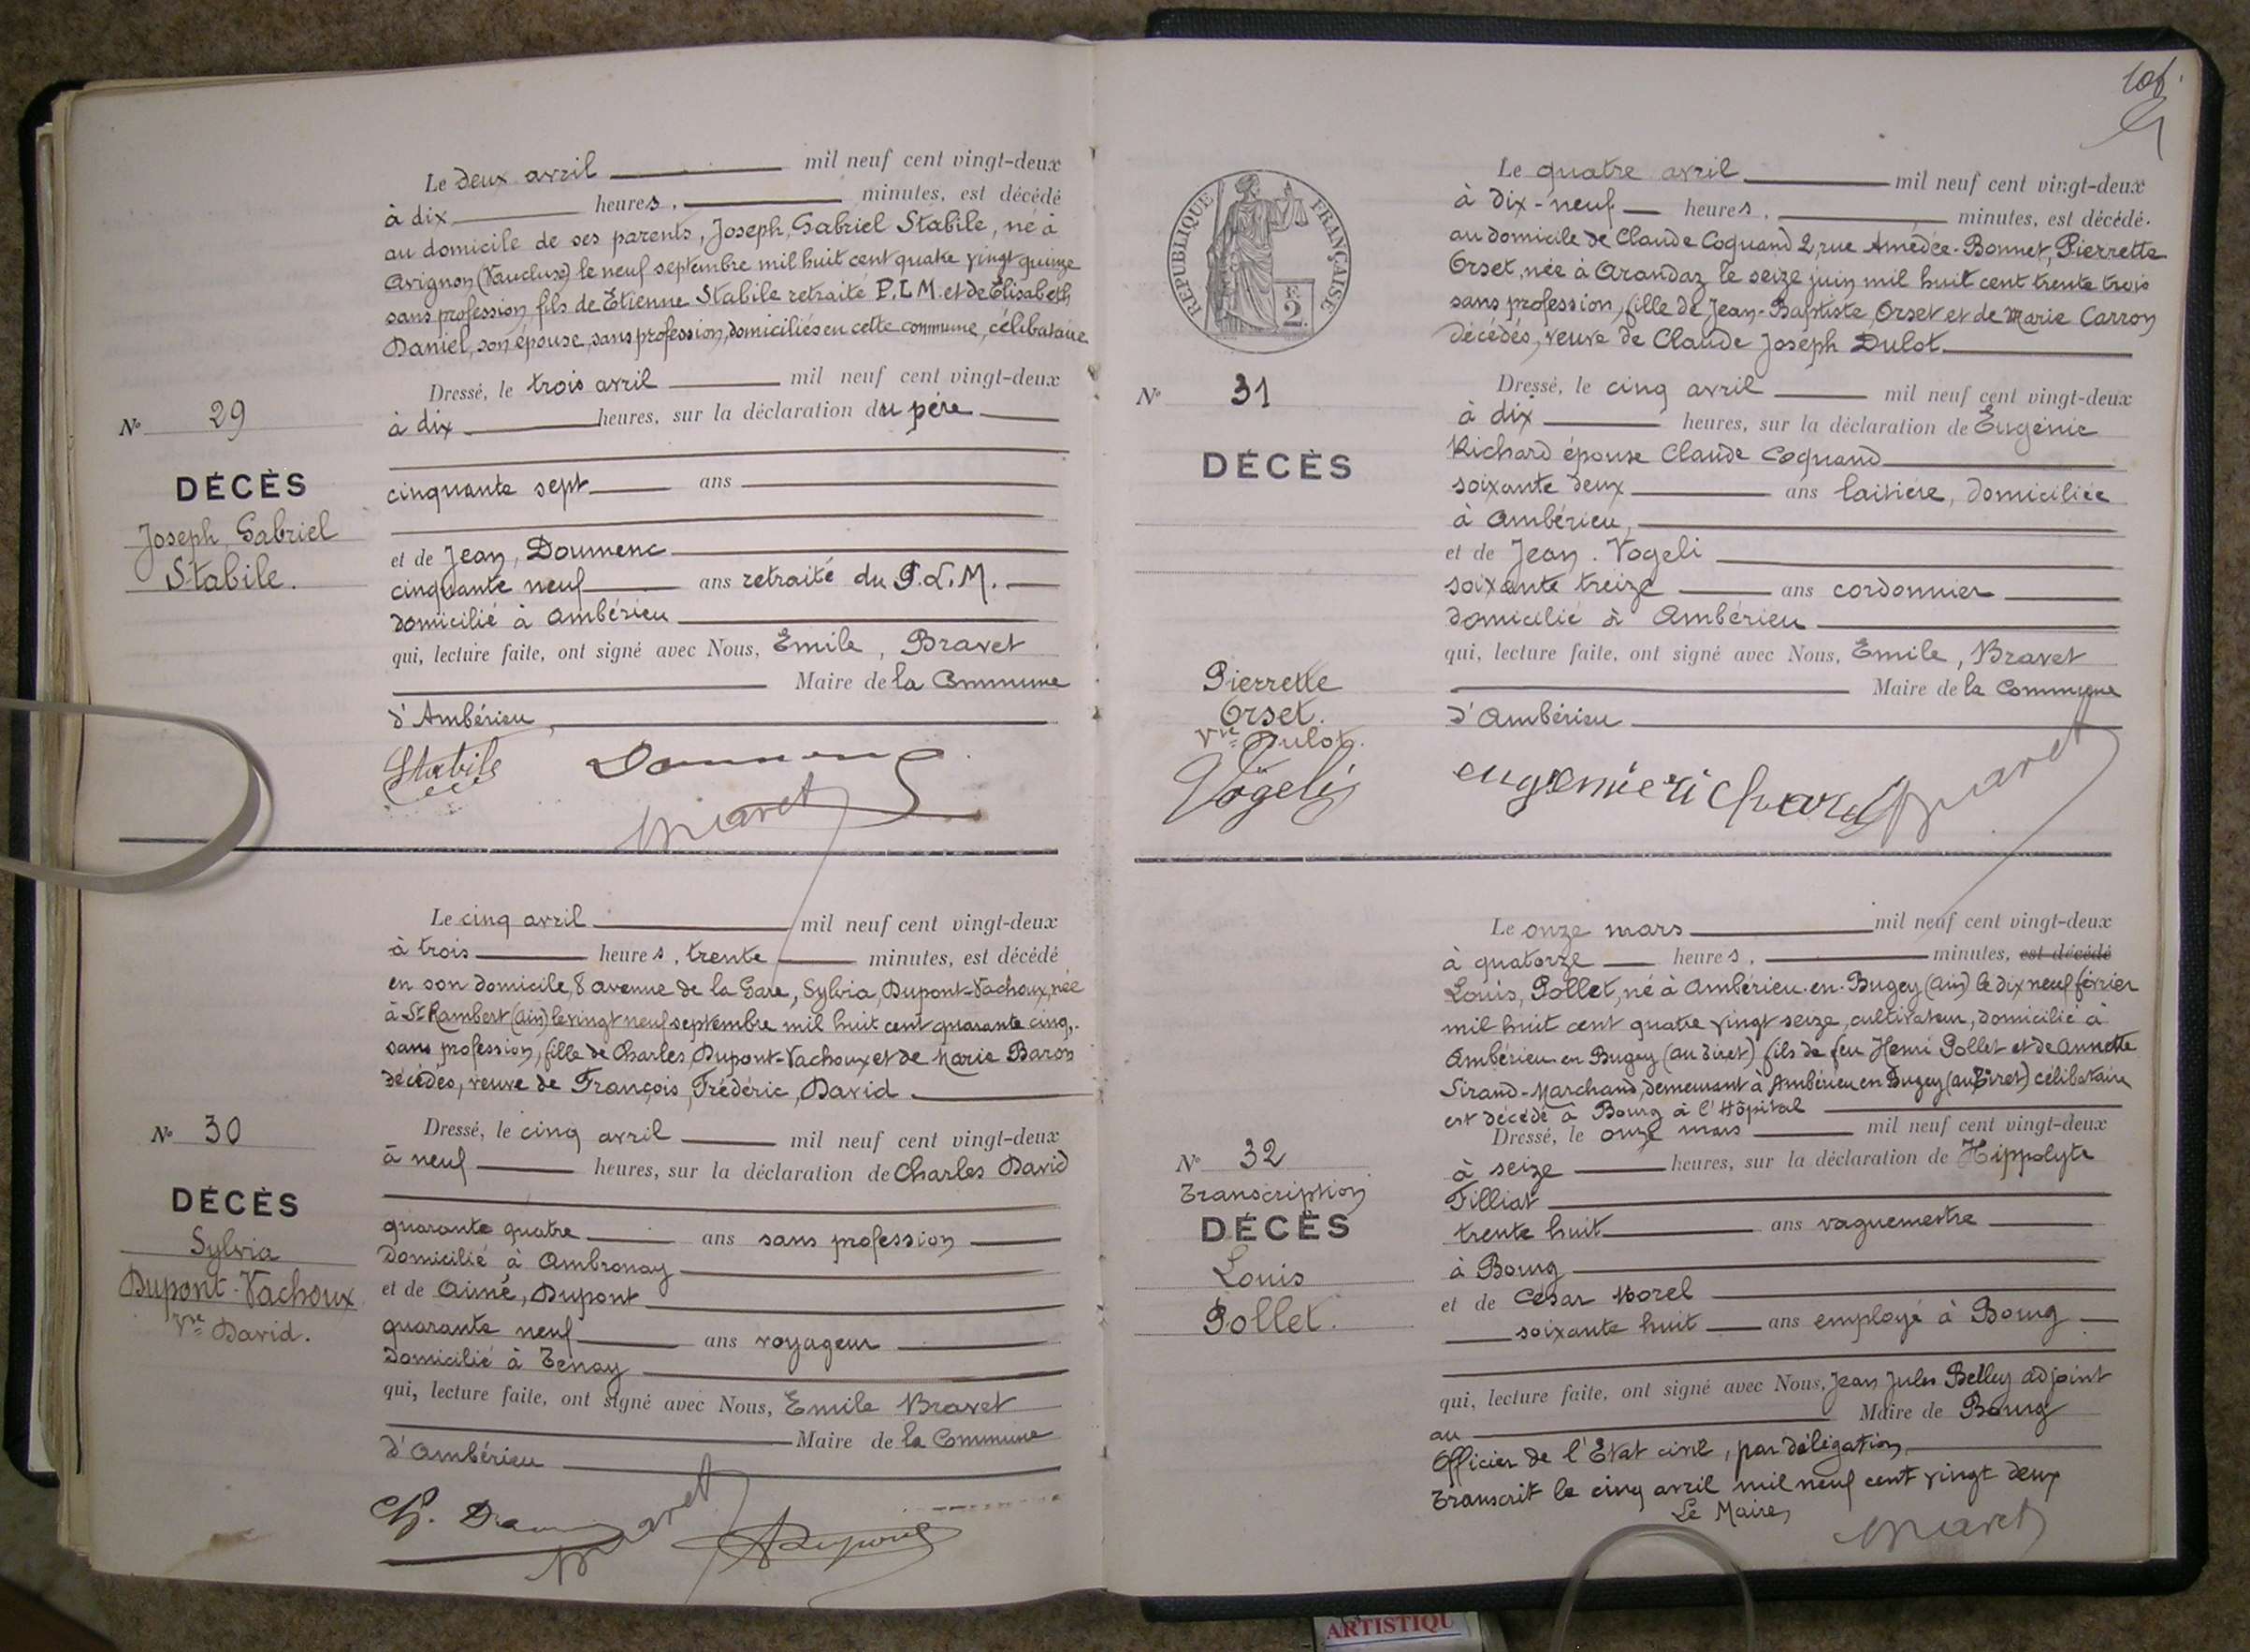 Le deux avril mil neuf cent vingt-deux
à dix heures, minutes, est décédé
au domicile de ses parents, Joseph, Gabriel Stabile, né à
Avignon (Vaucluse) le neuf septembre mil huit cent quatre vingt quinze
sans profession, fils de Etienne Stabile retraité P.L.M. et de Elisabeth
Daniel, son épouse, sans profession, domiciliés en cette commune, célibataire
Dressé, le trois avril mil neuf cent vingt-deux
à dix heures, sur la déclaration du père
cinquante sept ans
et de Jean, Doumenc
cinquante neuf ans retraité du P.L.M.
domicilié à Ambérieu
qui, lecture faite, ont signé avec Nous, Emile, Bravet
Maire de la Commune
d'Ambérieu
N° 29
DÉCÈS
Joseph, Gabriel
Stabile.
Stabile
Bravet
Le cinq avril mil neuf cent vingt-deux
à trois heures, trente minutes, est décédé
en son domicile, 8 avenue de la Gare, Sylvia, Dupont-Vachoux, née
à St Rambert (Ain) le vingt neuf septembre mil huit cent quarante cinq,
sans profession, fille de Charles, Dupont-Vachoux et de Marie Baron
décédés, veuve de François, Frédéric, David.
Dressé, le cinq avril mil neuf cent vingt-deux
à neuf heures, sur la déclaration de Charles David
quarante quatre ans sans profession
domicilié à Ambronay
et de Aimé, Dupont
quarante neuf ans voyageur
domicilié à Tenay
qui, lecture faite, ont signé avec Nous, Emile Bravet
Maire de la Commune
d'Ambérieu
N° 30
DÉCÈS
Sylvia
Dupont-Vachoux
Vve David.
Ch. David
Bravet
ADupont
RÉPUBLIQUE FRANÇAISE
2 F.
Le quatre avril mil neuf cent vingt-deux
à dix-neuf heures, minutes, est décédé.
au domicile de Claude Coquand 2, rue Amédée-Bonnet, Pierrette
Orset, née à Arandaz le seize juin mil huit cent trente trois
sans profession, fille de Jean-Baptiste, Orset et de Marie Carron
décédés, veuve de Claude Joseph Dulot.
Dressé, le cinq avril mil neuf cent vingt-deux
à dix heures, sur la déclaration de Eugénie
Richard épouse Claude Coquand
soixante deux ans laitière, domiciliée
à Ambérieu,
et de Jean. Vogeli
soixante treize ans cordonnier
domicilié à Ambérieu
qui, lecture faite, ont signé avec Nous, Emile, Bravet
Maire de la Commune
d'Ambérieu
N° 31
DÉCÈS
Pierrette
Orset.
Vve Dulot.
Vögeli
eugenie richard
Bravet
Le onze mars mil neuf cent vingt-deux
à quatorze heures, minutes, est décédé
Louis, Pollet, né à Ambérieu-en-Bugey (Ain) le dix neuf février
mil huit cent quatre vingt seize, cultivateur, domicilié à
Ambérieu en Bugey (au Tiret) fils de feu Henri Pollet et de Annette
Sirand-Marchand, demeurant à Ambérieu en Bugey (au Tiret) célibataire
est décédé à Bourg à l'Hôpital
Dressé, le onze mars mil neuf cent vingt-deux
à seize heures, sur la déclaration de Hippolyte
Filliat
trente huit ans vaguemestre
à Bourg
et de César Morel
soixante huit ans employé à Bourg
qui, lecture faite, ont signé avec Nous, Jean Jules Belley adjoint
au Maire de Bourg
Officier de l'Etat civil, par délégation,
Transcrit le cinq avril mil neuf cent vingt deux
Le Maire,
Bravet
N° 32
Transcription
DÉCÈS
Louis
Pollet.
ARTISTIQU